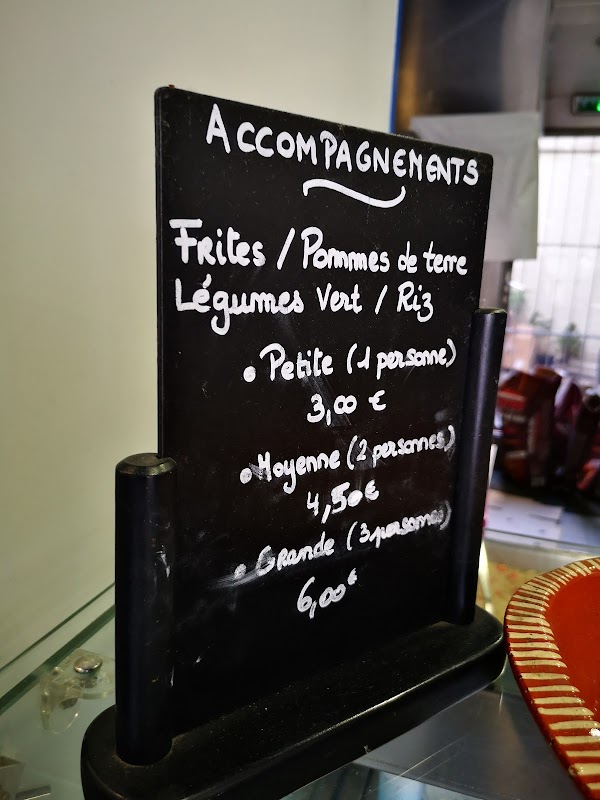 ACCOMPAGNEMENTS
Frites / Pommes de terre
Légumes Vert / Riz
• Petite (1 personne)
3,00 €
• Moyenne (2 personnes)
4,50€
• Grande (3 personnes)
6,00€